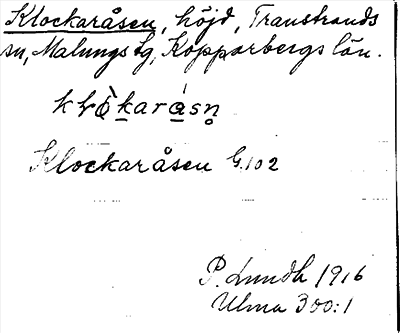 Klockaråsen, höjd, Transtrands
sn, Malungs tg, Kopparbergs län.
Klockaråsen G.102
P. Lundh 1916
Ulma 300:1